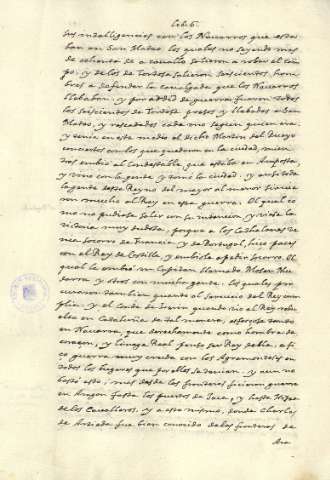 Lib. 6.
sus intelligencias con los Navarros que esta
ban en San Matheo. los quales no siendo mas
de ochenta de a cavallo salieron a robar el cam
po, y de los de Tortosa salieron seiscientos hom
bres a defender la cavalgada que los Navarros
llebaban y por ardid de guerra fueron todos
los seiscientos de Tortosa presos y llebados a San
Matheo, y rescatados cada uno segun quien era
y tenia en este medio el dicho Martin
conciertos con los que quedaron en la ciudad, mien
tras embio al Condestable que estaba en Amposta,
y vino con la gente y tomó la ciudad. y assi toda
la gente deste Reyno del mayor al menor sirvie
ron mucho al Rey en esta guerra. El qual co
mo no pudiesse salir con su intencion y viesse la
victoria muy dudosa, porque a los Cathalanes ve
nia socorro de Francia, y de Portugal, hizo paces
con el Rey de Castilla, y embiole a pedir socorro. El
qual le embió un Capitan llamado Mosen
y otros con mucha gente. los quales pro
curaron tambien quanto al servicio del Rey cum
plia. y el Conde de Lerin quando vio al Rey rebu
elto en Cataluña de tal manera, esforçose tanto
en Navarra, que derechamente como hombre de
coraçon, y linage Real
guerra muy cruda con los Agramonteses en
todos los lugares que por ellos se tenian. y aun no
bastó esto; mas desde las fronteras hicieron guerra
en Aragon hasta los puertos de Jaca, y hasta
de los Cavalleros, y a esto mismo, donde Charles
de Artieda fue bien conocido de las fronteras de
Ara